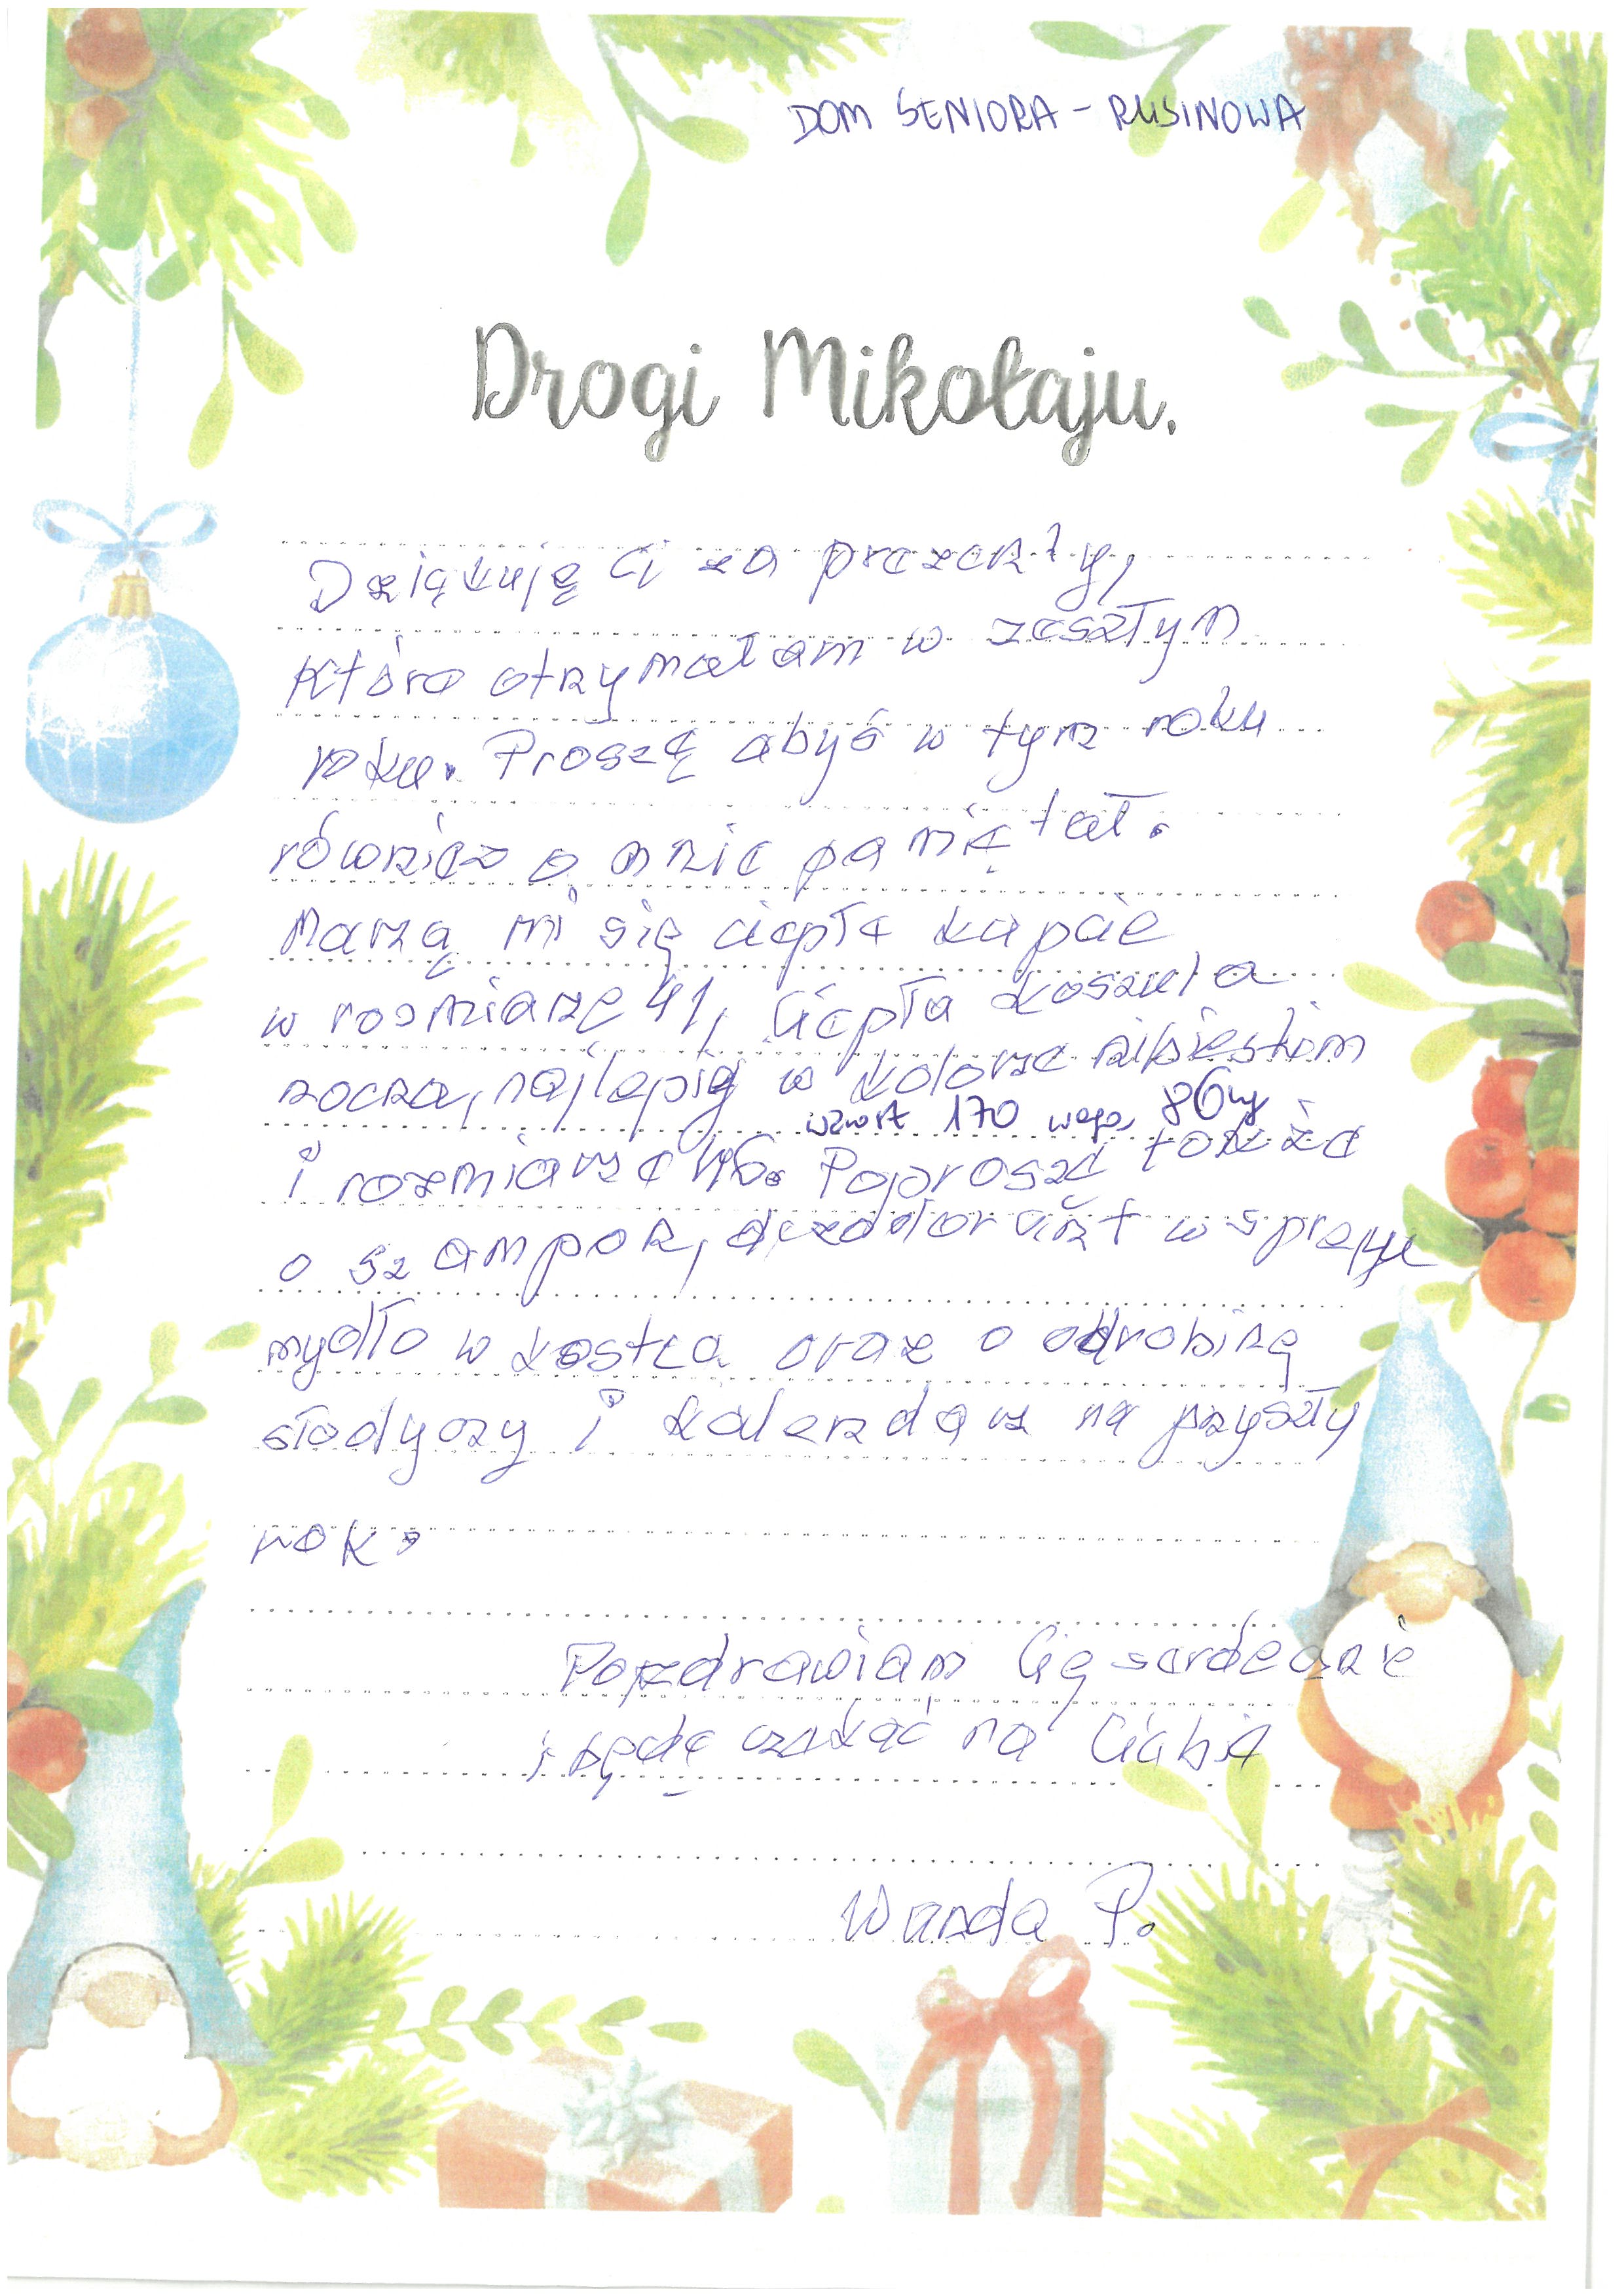 DOM SENIORA - RUSINOWA
Drogi Mikołaju,
Dziękuję Ci za prezenty,
które otrzymałam w zeszłym
roku. Proszę abyś w tym roku
również o mnie pamiętał.
Marzą mi się ciepłe kapcie
w rozmiarze 41, ciepła koszula
nocna, najlepiej w kolorze niebieskim
wzrost 170 waga 86kg
i rozmiarze 46. Poproszę także
o szampon, dezodorant w sprayu
mydło w kostca oraz o odrobinę
słodyczy i kalendarz na przyszły
rok.
Pozdrawiam Cię serdecznie
i będę czekać na Ciebie
Wanda P.